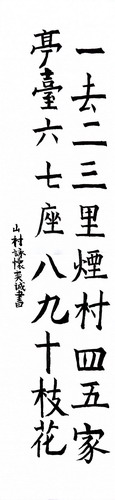 一去二三里煙村四五家
亭臺六七座八九十枝花
山村詠懷英誠書